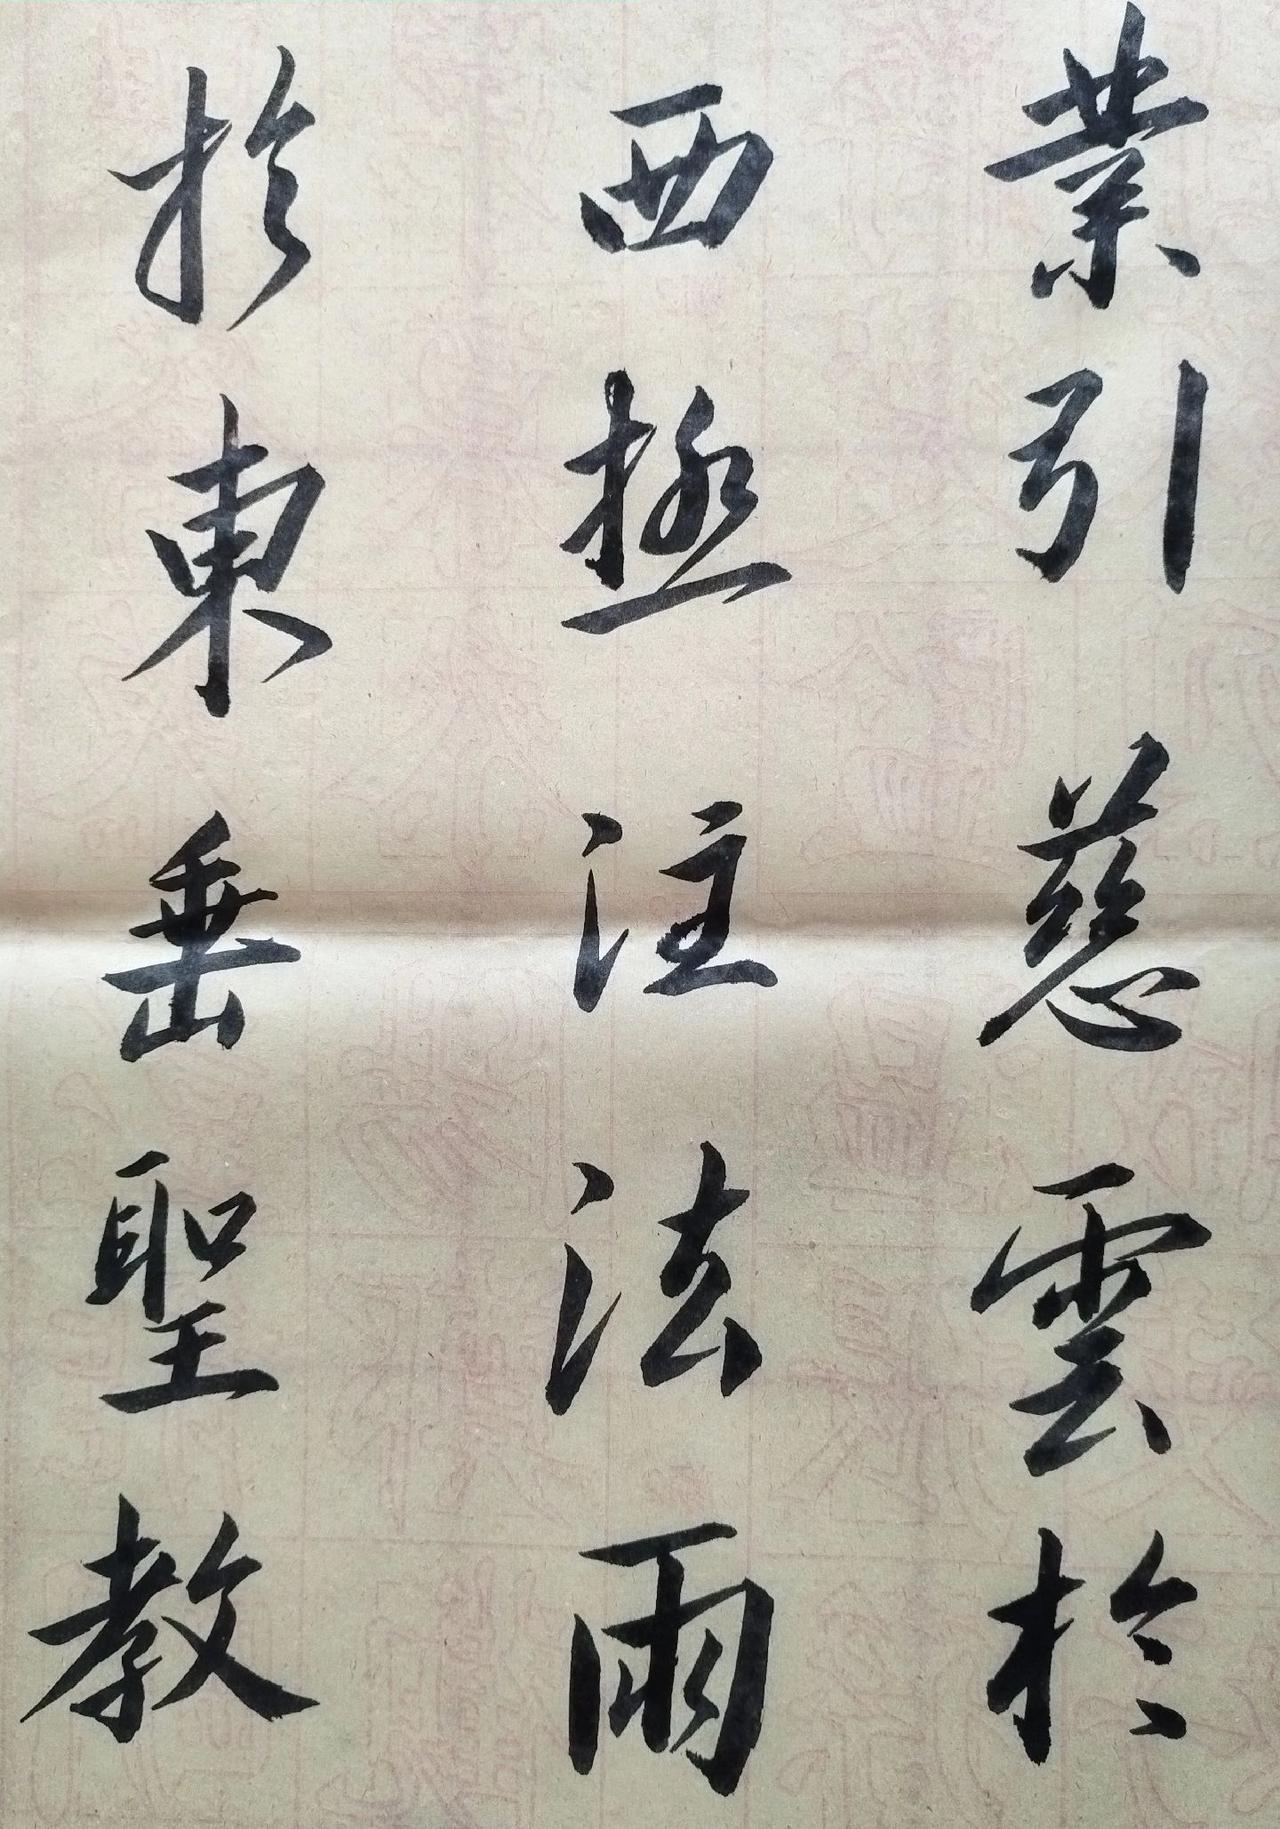 業引慈雲於
西極注法雨
於東垂聖教